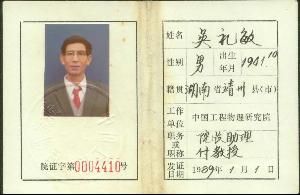 院证字第0004410号
姓名 吴礼敏
性别 男 出生年月 1941.10
籍贯 湖南省靖州县(市)
工作单位 中国工程物理研究院
职务或职称 院级助理
付教授
发证日期 1989年1月1日